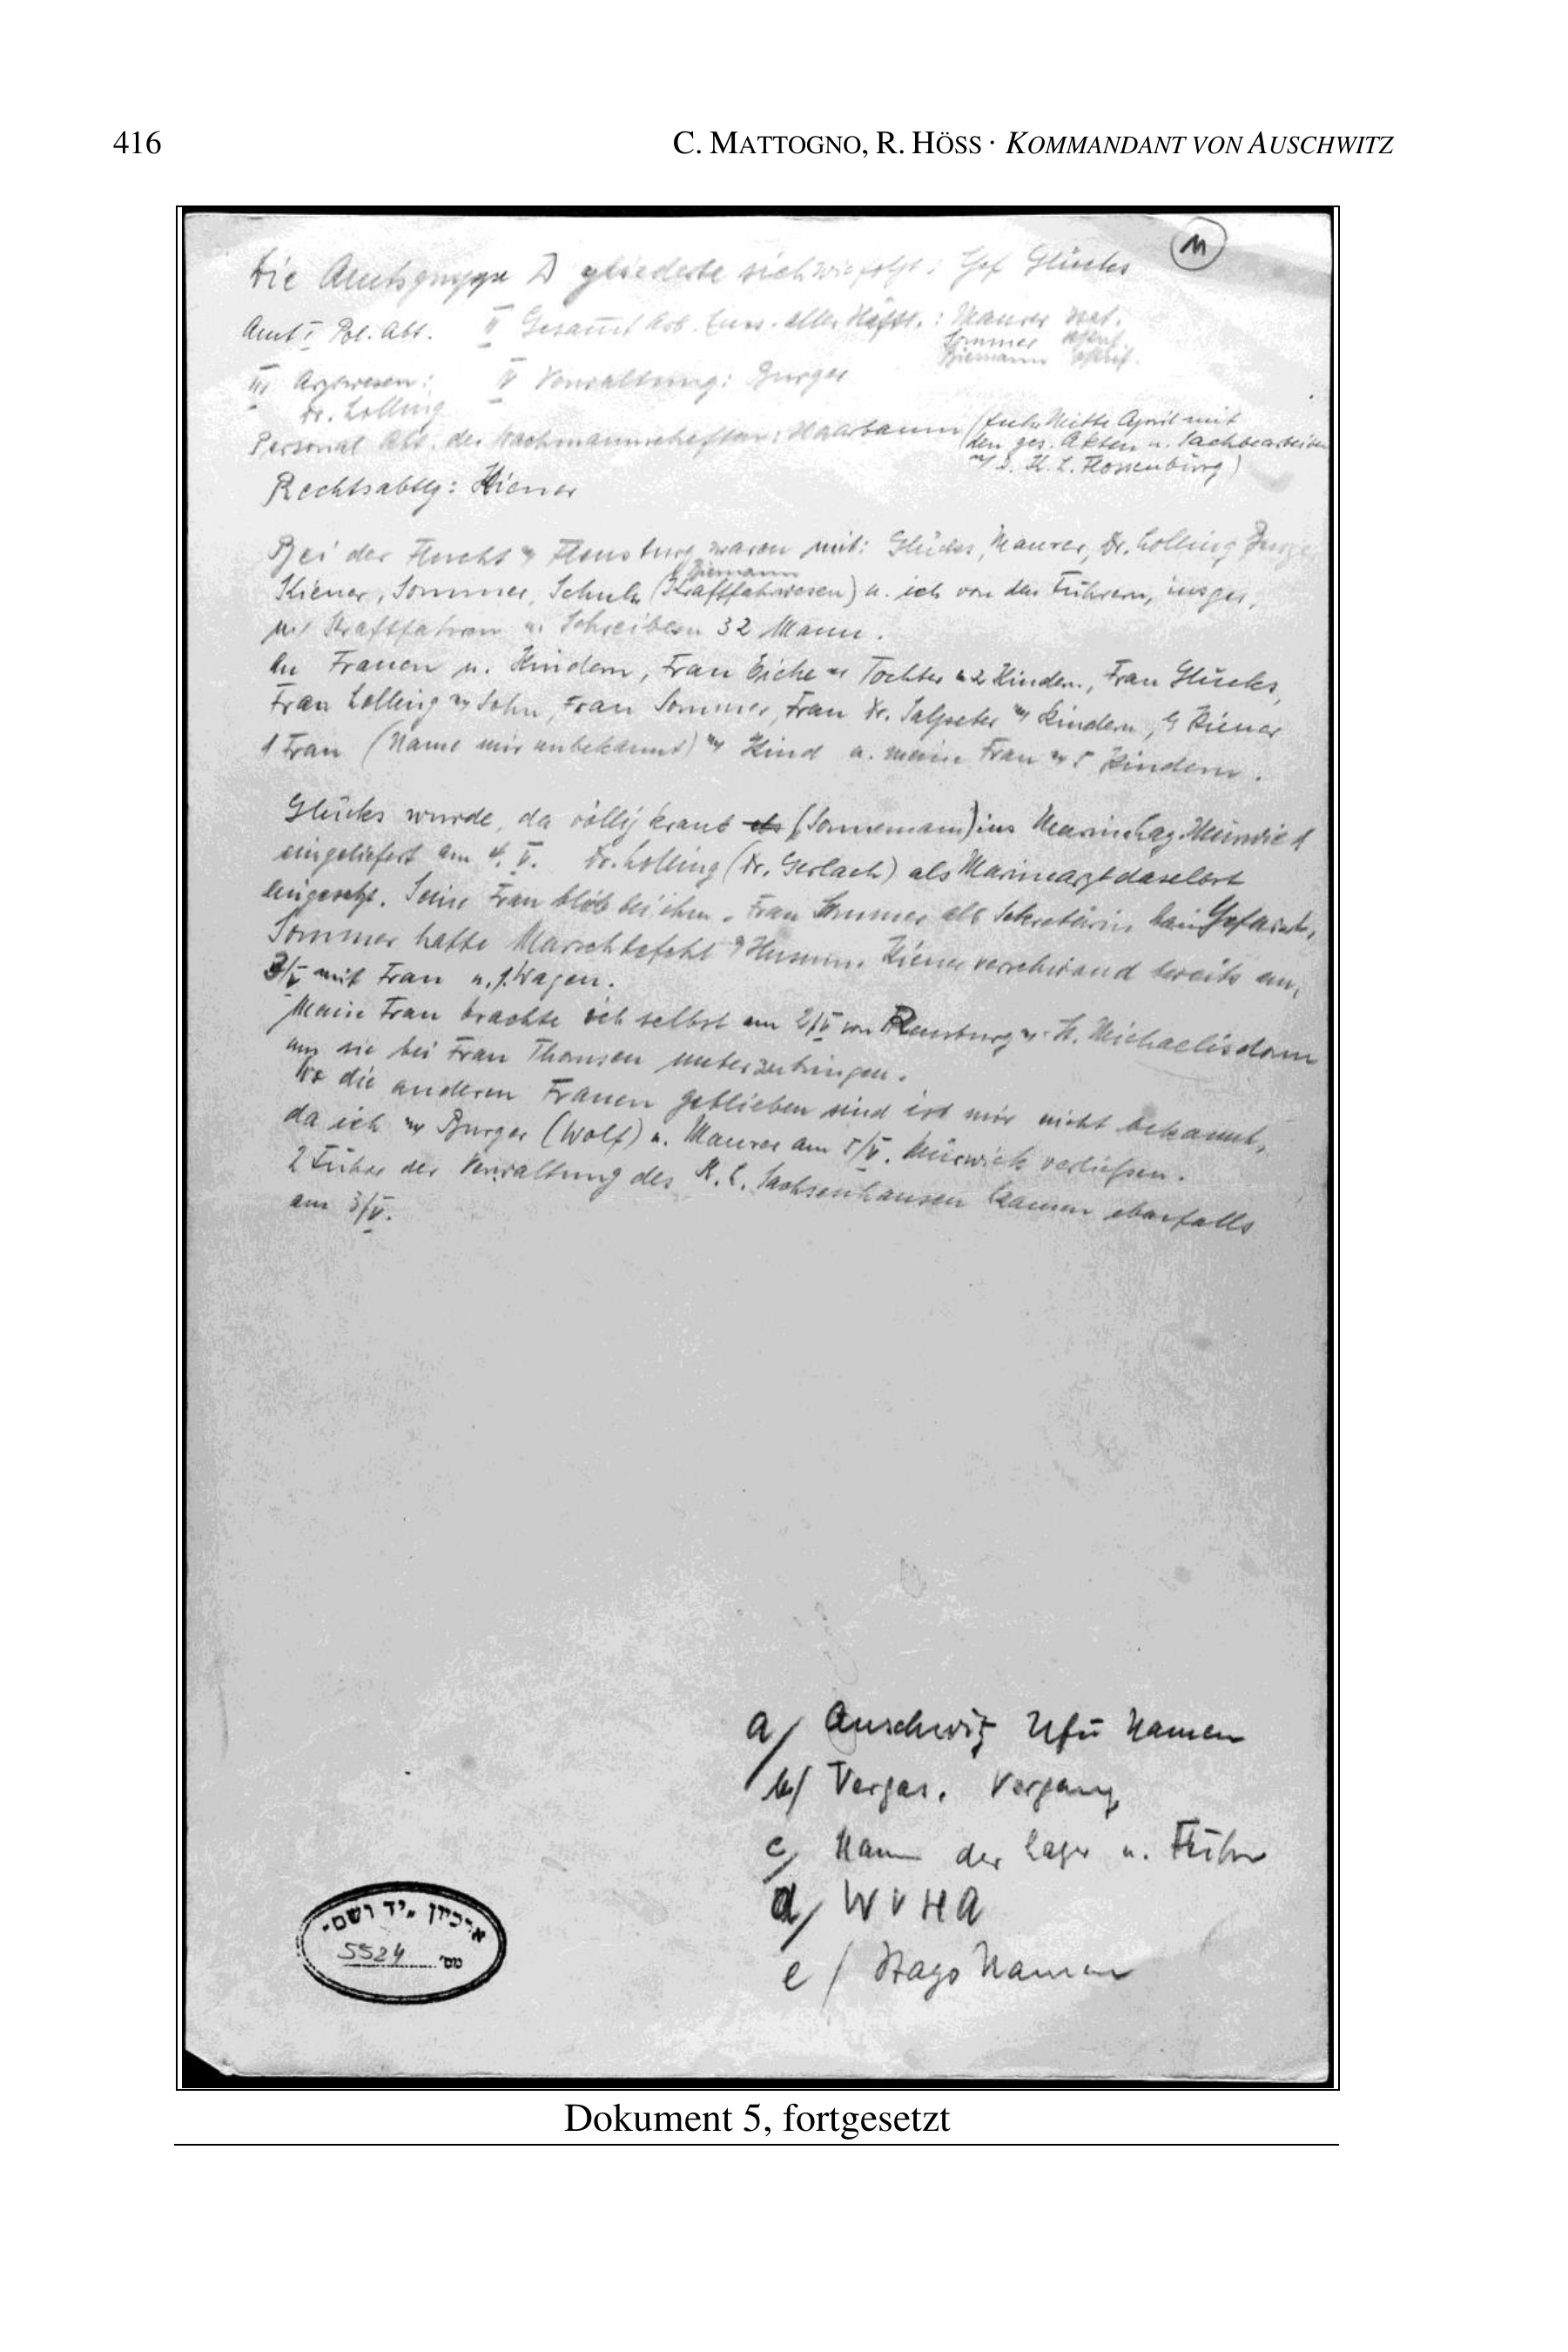 416
C. MATTOGNO, R. HÖSS · KOMMANDANT VON AUSCHWITZ
11
Die Amtsgruppe D gliederte sich wie folgt: Chef Glücks
Amt I Pol. Abt. II Gesamt Arb. Eins. aller Häftl.: Maurer
Sommer
Biemann
III Arztwesen: IV Verwaltung: Burger
Dr. Lolling
Personal Abt. der Wachmannschaften: Haarbaum (fuhr Mitte April mit
den ges. Akten u. Sachbearbeitern
K. L. Flossenbürg)
Rechtsabtlg: Kiener
Bei der Flucht Flensburg waren mit: Glücks, Maurer, Dr. Lolling, Burger
Biemann
Kiener, Sommer, Schulz (Kraftfahrwesen) u. ich von den Führern, insges.
Kraftfahrern u. Schreibern 32 Mann.
An Frauen u. Kindern, Frau Eicke Tochter u 2 Kindern, Frau Glücks,
Frau Lolling Sohn, Frau Sommer, Frau Dr. Salpeter Kindern, Kiener
1 Frau (Name mir unbekannt) Kind u. meine Frau 5 Kindern.
Glücks wurde, da völlig krank als (Sonnemann) ins
eingeliefert am 4. V. Dr. Lolling (Dr. Gerlach) als Marinearzt daselbst
eingesetzt. Seine Frau blieb bei ihm. Frau Sommer als Sekretärin beim
Sommer hatte Marschbefehl Husum. Kiener verschwand bereits am
3/V mit Frau u. 1 Wagen.
Meine Frau brachte ich selbst am 2/V von Rensburg St. Michaelisdonn
um sie bei Frau Thomsen unterzubringen.
Wo die anderen Frauen geblieben sind ist mir nicht bekannt,
da ich Burger (Wolf) u. Maurer am 5/V. Mürwick verließen.
2 Führer der Verwaltung des K. L. Sachsenhausen kamen ebenfalls
am 3/V.
a/ Auschwitz Namen
b/ Vergas. Vorgang
c/ Nam der Lager u. Führ
d/ W V H A
e/ Namen
ארכיון "יד ושם"
מס' 5524
Dokument 5, fortgesetzt